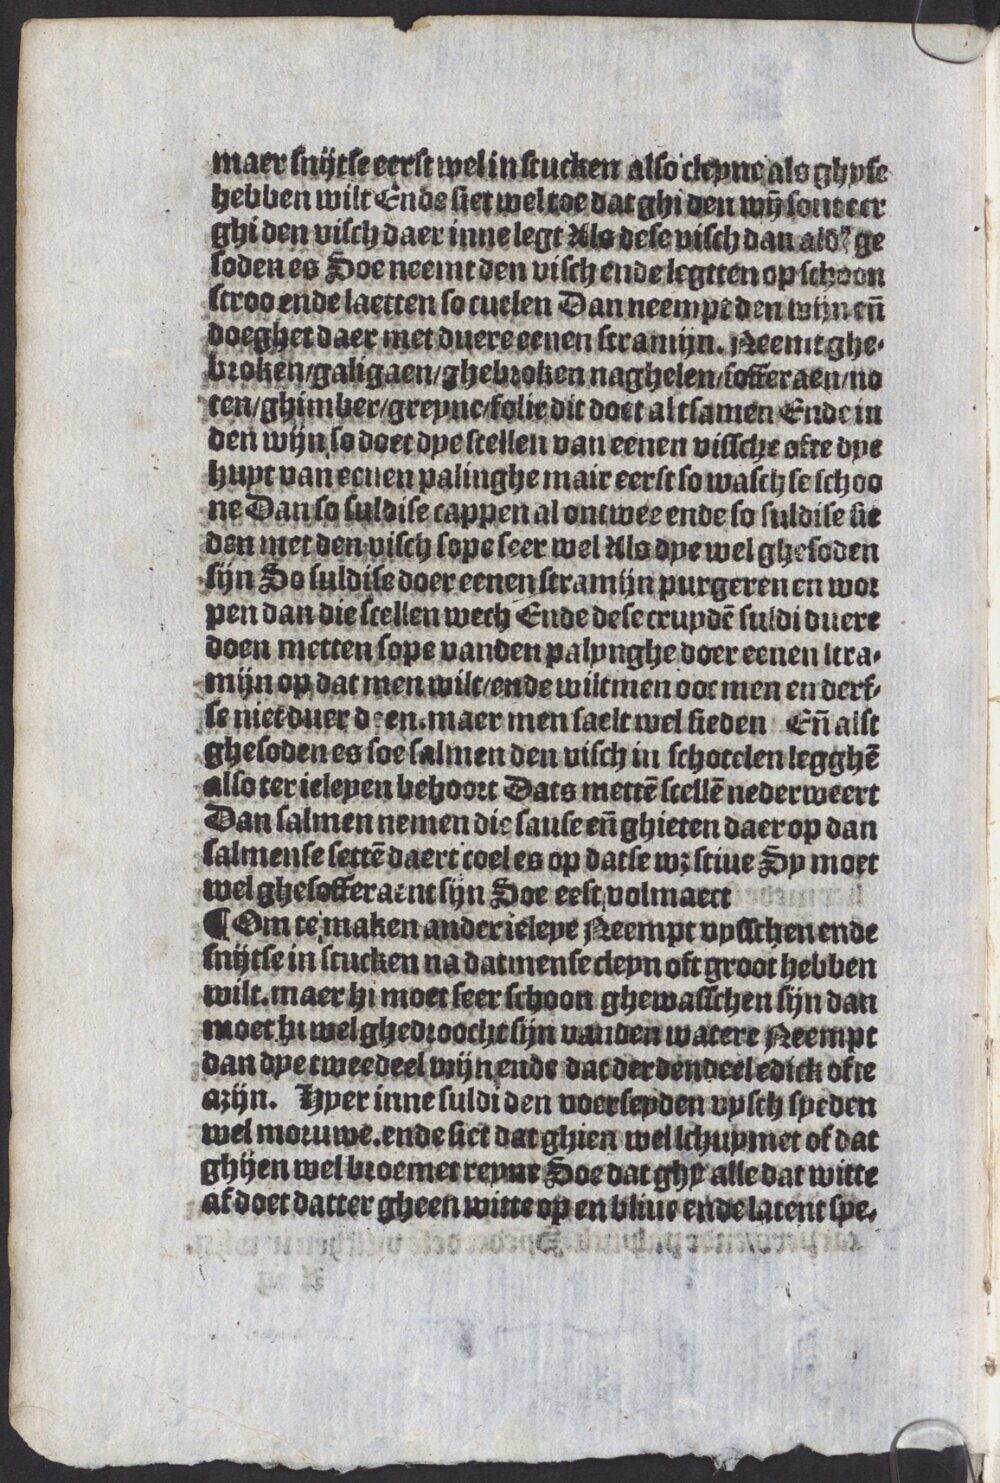 maer snijtse eerst wel in stucken also cleyne als ghyse
hebben wilt Ende siet wel toe dat ghi den wijn sout eer
ghi den visch daer inne legt Als dese visch dan ald' ge
soden es Soe neemt den visch ende legtten op schoon
stroo ende laetten so cuelen Dan neempt den wijn eñ
doeghet daer met duere eenen stramijn. Neemt ghe⸗
broken/galigaen/ghebroken naghelen/soffraen/no
ten/ghimber/greyne/folie dit doet al tsamen Ende in
den wijn so doet dye scellen van eenen vissche ofte dye
huyt van eenen palinghe mair eerst so wasch se schoo
ne Dan so suldise cappen al ontwee ende so suldise sie
den met den visch sope seer wel Als dye wel ghesoden
sijn So suldise doer eenen stramijn purgeren en wor
pen dan die scellen wech Ende dese cruydē suldi duere
doen metten sope vanden palynghe doer eenen stra⸗
mijn op dat men wilt/ende wilt men ooc men en derf⸗
se niet duer doen. maer men saelt wel sieden Eñ alst
ghesoden es soe salmen den visch in schotelen legghē
also ter ieleyen behoort Dats mettē scellē nederweert
Dan salmen nemen die sause eñ ghieten daer op dan
salmense settē daert coel es op datse wz stiue Sy moet
wel ghesofferaent sijn Soe eest volmaect
¶ Om te maken ander ieleye Neempt vysschen ende
snijtse in stucken na datmense cleyn oft groot hebben
wilt. maer hi moet seer schoon ghewasschen sijn dan
moet hi wel ghedroocht sijn vanden watere Neempt
dan dye tweedeel wijn ende dat derdendeel edick ofte
azijn. Hyer inne suldi den voerseyden vysch syeden
wel moruwe. ende siet dat ghien wel schuymet of dat
ghijen wel broemet reyne Soe dat ghy alle dat witte
af doet datter gheen witte op en bliue ende latent sye⸗